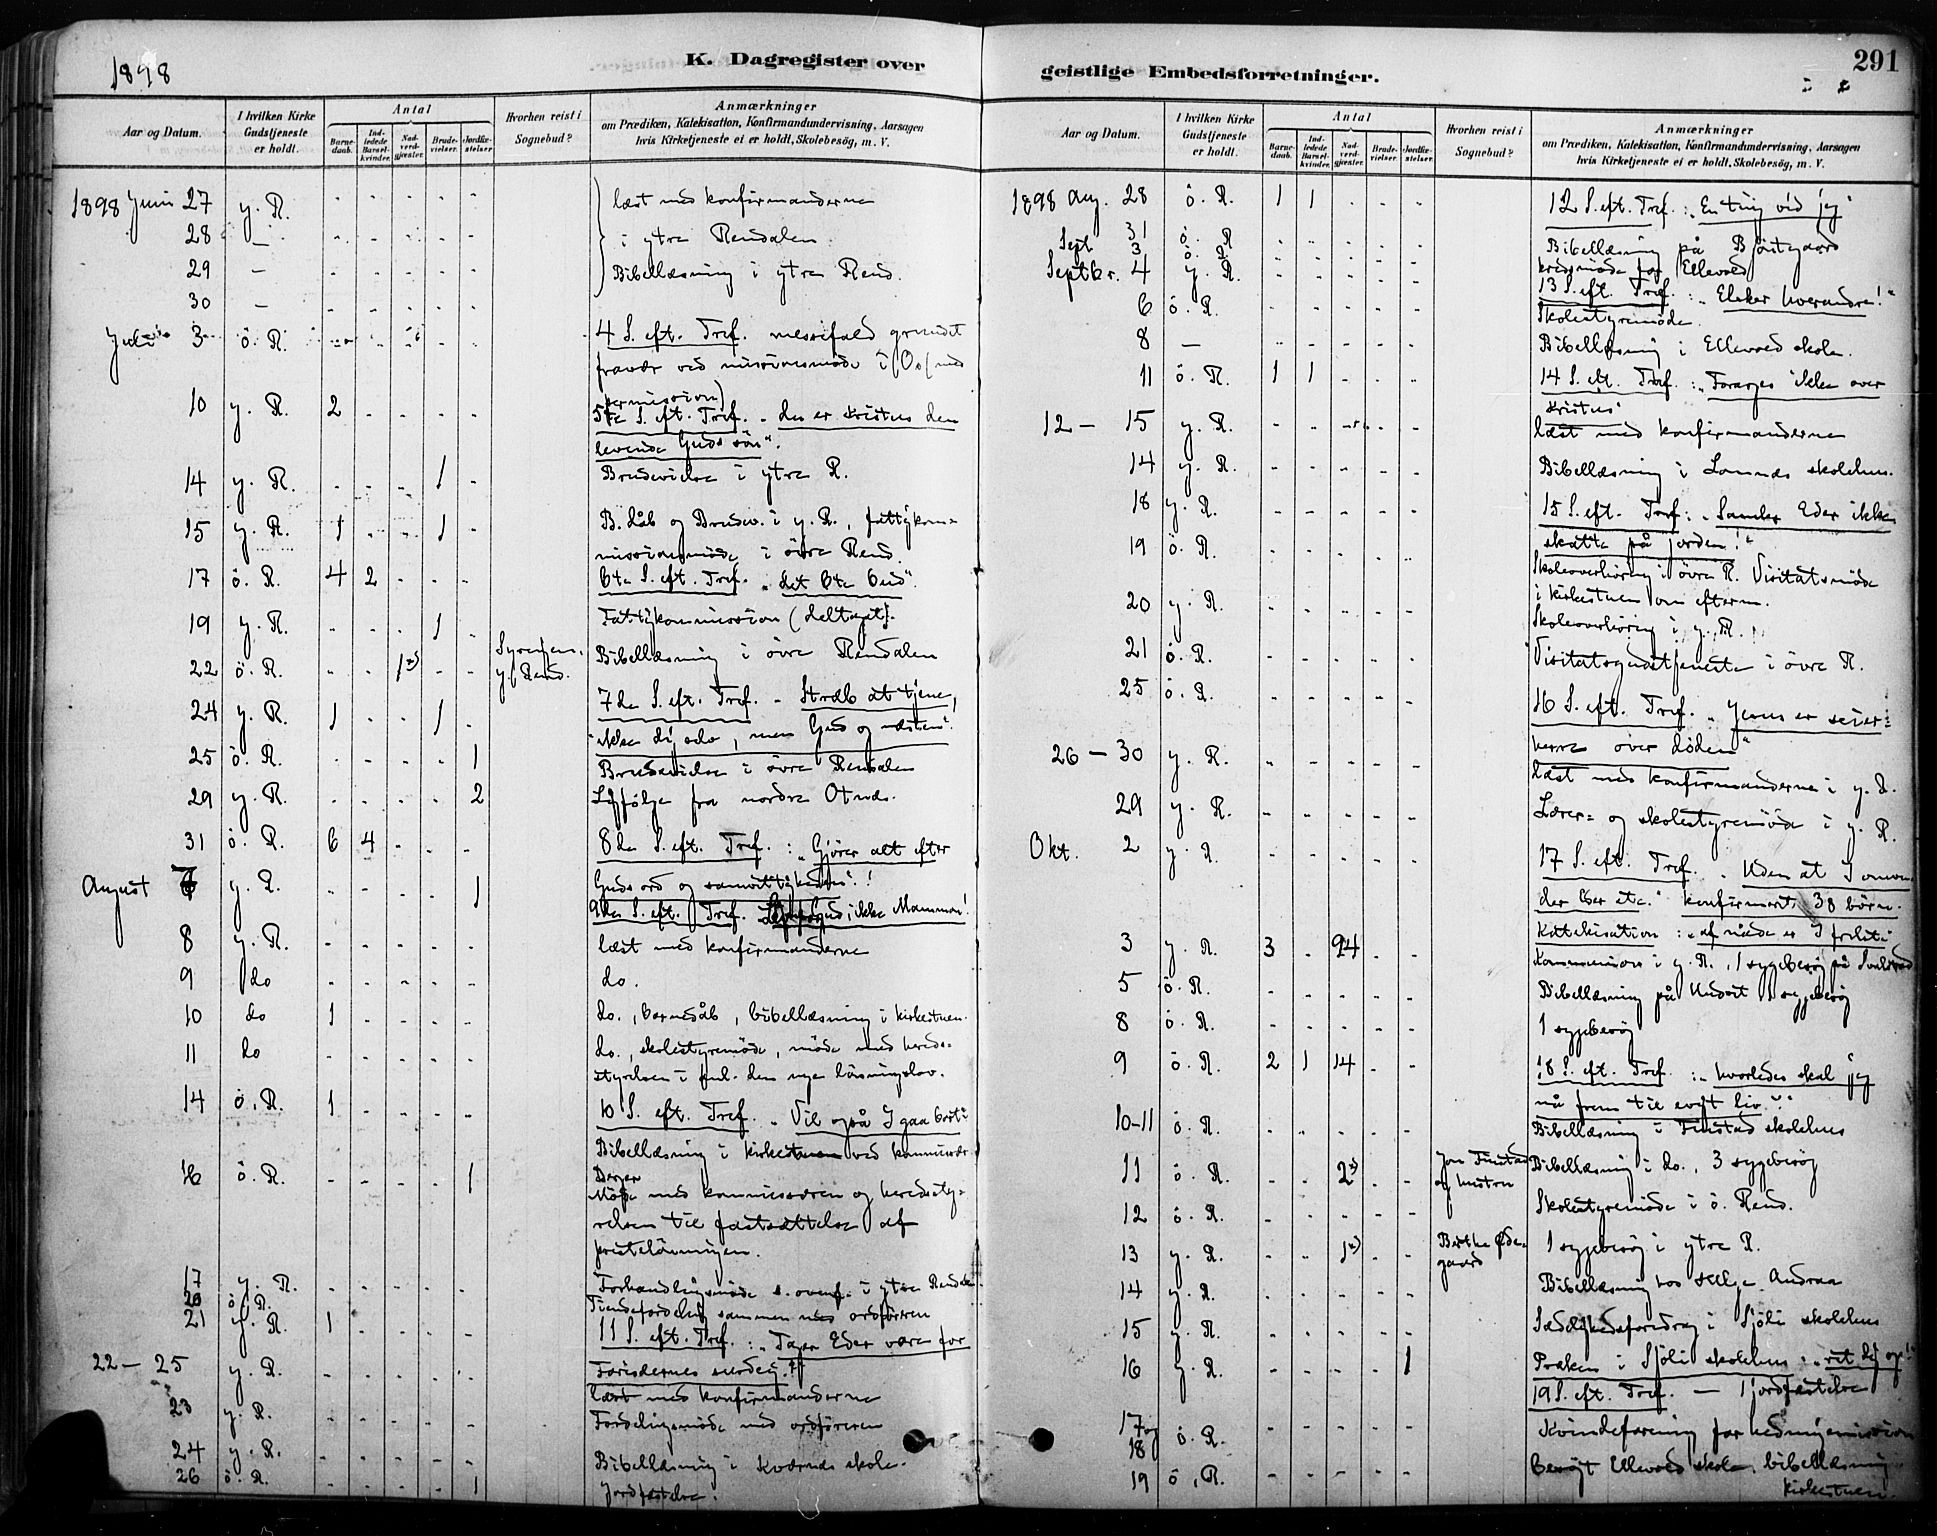 1898
K. Dagregister over
Aar og Datum.
I hvilken Kirke Gudstjeneste er holdt.
Antal
Barnedaab.
Indledede Barselkvinder.
Nadverdgjæster.
Brudevielser.
Jordfæstelser.
Hvorhen reist i Sognebud?
Anmærkninger
om Prædiken, Katekisation, Konfirmandundervisning, Aarsagen
hvis Kirketjeneste ei er holdt, Skolebesög, m. V.
1898 Juni 27 y. R. læst med konfirmanderne
28 — i ytre Rendalen
29 — Bibellæsning i ytre Rend.
30 —
Juli 3 ö. R. 4 S. eft. Tref. messefald grundet
fravær ved missionsmöde i Os (med
permission)
10 y. R. 2 5te S. eft. Tref. „du er Kristus den
levende Guds sön“.
14 y. R. 1 Brudevielse i ytre R.
15 y. R. 1 1 B. dåb og Brudev. i y. R., fattigkom-
missionsmöde i övre Rend.
17 ö. R. 4 2 6te S. eft. Tref. „det 6te bud“.
19 y. R. 1 Fattigkommission (deltaget).
22 ö. R. 1 y. Rend. Bibellæsning i övre Rendalen
24 y. R. 1 1 7de S. eft. Tref. „Stræb at tjene,
ikke dig selv, men Gud og næsten“.
25 ö. R. 1 Brudevielse i övre Rendalen
29 y. R. 2 Ligfölge fra nordre Otnes.
31 ö. R. 6 4 8de S. eft. Tref.: „Gjörer alt efter
Guds ord og samvittigheden“!
August 7 y. R. 1 9de S. eft. Tref. Gud, ikke Mammon!
8 y. R. læst med konfirmanderne
9 do do.
10 do 1 do., barnedåb, bibellæsning i kirkestuen.
11 do do., skolestyremöde, möde med herreds-
styrelsen i anl. den nye lösningslov.
14 ö. R. 1 10 S. eft. Tref. „Vil også I gaa bort“
Bibellæsning i kirkestuen ved kommissær
16 ö. R. 1 Möde med kommissæren og heredssty-
relsen til fastsættelse af
prestelönningen.
17 y. R. Forhandlingsmöde i ytre Rendalen
20 ö. R. Tiendefordeling sammen med ordföreren
21 y. R. 1 11 S. eft. Tref.: „Tager Eder vare for
Farisæernes surdeig“!
22 — 25 y. R. læst med konfirmanderne
23 y. R. Fordelingsmöde med ordföreren
24 y. R. Bibellæsning i Kværnes skole.
26 ö. R. 1 Jordfæstelse.
geistlige Embedsforretninger.
291
Aar og Datum.
I hvilken Kirke Gudstjeneste er holdt.
Antal
Barnedaab.
Indledede Barselkvinder.
Nadverdgjæster.
Brudevielser.
Jordfæstelser.
Hvorhen reist i Sognebud?
Anmærkninger
om Prædiken, Katekisation, Konfirmandundervisning, Aarsagen
hvis Kirketjeneste ei er holdt, Skolebesög, m. V.
1898 Aug. 28 ö. R. 1 1 12 S. eft. Tref.: „En ting vid jeg“
31 ö. R. Bibellæsning på
Sept 3 ö. R. kredsmöde for Ellevold
Septbr. 4 y. R. 13 S. eft. Tref.: „Elsker hverandre!“
6 ö. R. Skolestyremöde.
8 — Bibellæsning i Ellevold skole.
11 ö. R. 1 1 14 S. eft. Tref.: „Forarges ikke over
Kristus“
12 — 15 y. R. læst med konfirmanderne
14 y. R. Bibellæsning i Lomnæs skolehus.
18 y. R. 15 S. eft. Tref.: „Samler Eder ikke
skatte på jorden!“
19 ö. R. Skoleoverhöring i övre R. Visitatsmöde
i kirkestuen om efterm.
20 y. R. Skoleoverhöring i y. R.
21 ö. R. Visitatsgudstjeneste i övre R.
25 ö. R. 16 S. eft. Tref. „Jesus er seier-
herre over döden“
26 — 30 y. R. læst med konfirmanderne i y. R.
29 y. R. Lærer- og skolestyremöde i y. R.
Okt. 2 y. R. 17 S. eft. Tref. „Uden at I omven-
der Eder etc.“ konfirmert 38 börn.
Katekisation: „af nåde er I frelst“
3 y. R. 3 94 Kommunion i y. R., 1 sygebesög på
5 ö. R. Bibellæsning på 1 sygebesög
8 ö. R. 1 sygebesög
9 ö. R. 2 1 14 18 S. eft. Tref.: „hvorledes skal jeg
nå frem til evigt liv“
10-11 ö. R. Bibellæsning i Finstad skolehus
11 ö. R. 2 Jon Finstad og hustru Bibellæsning i do., 3 sygebesög
12 ö. R. Skolestyremöde i ö. Rend.
13 y. R. 1 Berthe Ödegaard 1 sygebesög i ytre R.
14 y. R. Bibellæsning hos Helge Andraa
15 y. R. Sædelighedsforedrag i Sjöli skolehus
16 y. R. 1 Præken i Sjöli skolehus: „ret dig op!“
19 S. eft. Tref. — 1 jordfæstelse
17 og 18 ö. R. Kvindeforening for hedningemission
19 ö. R. besögt Ellevold skole, bibellæsning
kirkestuen.